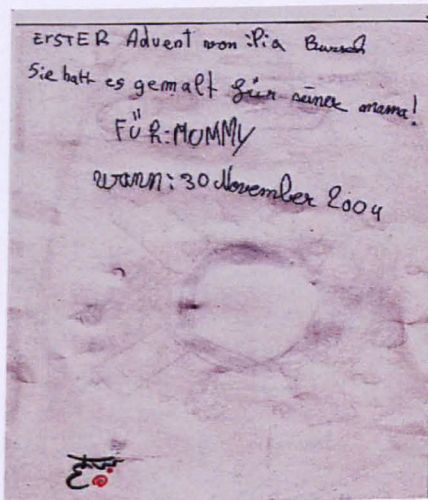 ErSTER Advent von: Pia
Sie hatt es gemalt für seiner mama!
FÜR: MOMMY
wann: 30 November 2004